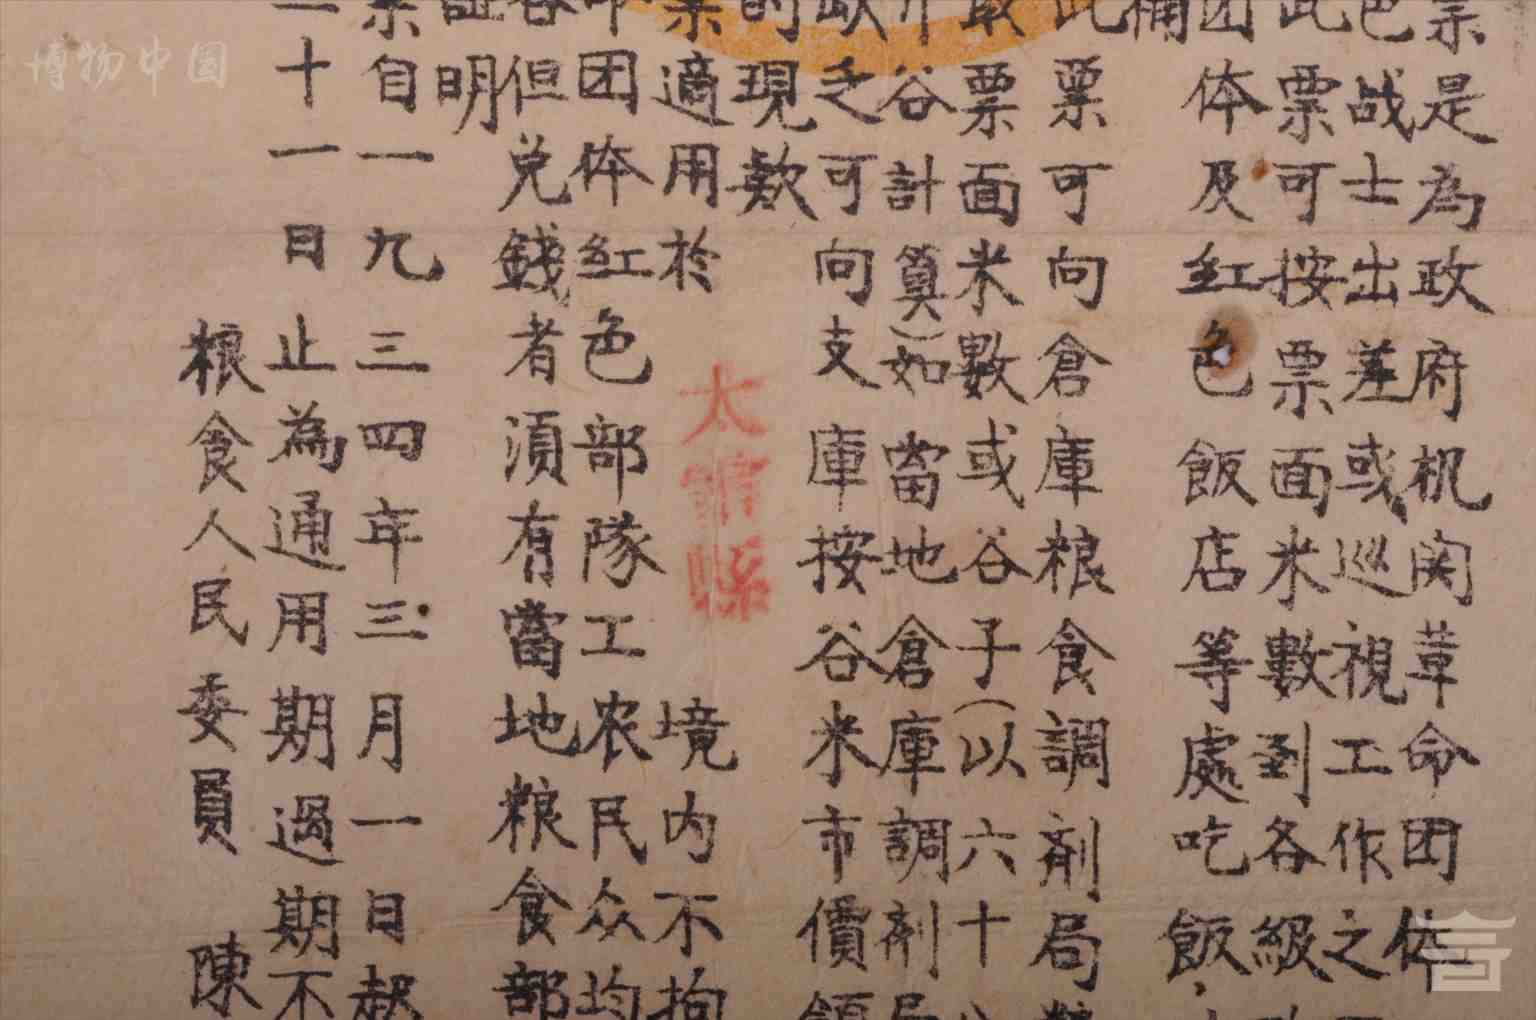 票是為政府机関革命团体
色战士出差或巡視工作之
此票可按票面米數到各級
团体及红色飯店等處吃飯
補
此票可向倉庫粮食調剂局
票面米數或谷子(以六十
谷計算(如當地倉庫調剂局
缺乏可向支庫按谷米市價領
的現款
票適用於太寧縣境内不拘
团体红色部隊工农民众均
但兑錢者須有當地粮食部
証明
票自一九三四年三月一日起
二十一日止為通用期過期不
粮食人民委員 陳
博物中国